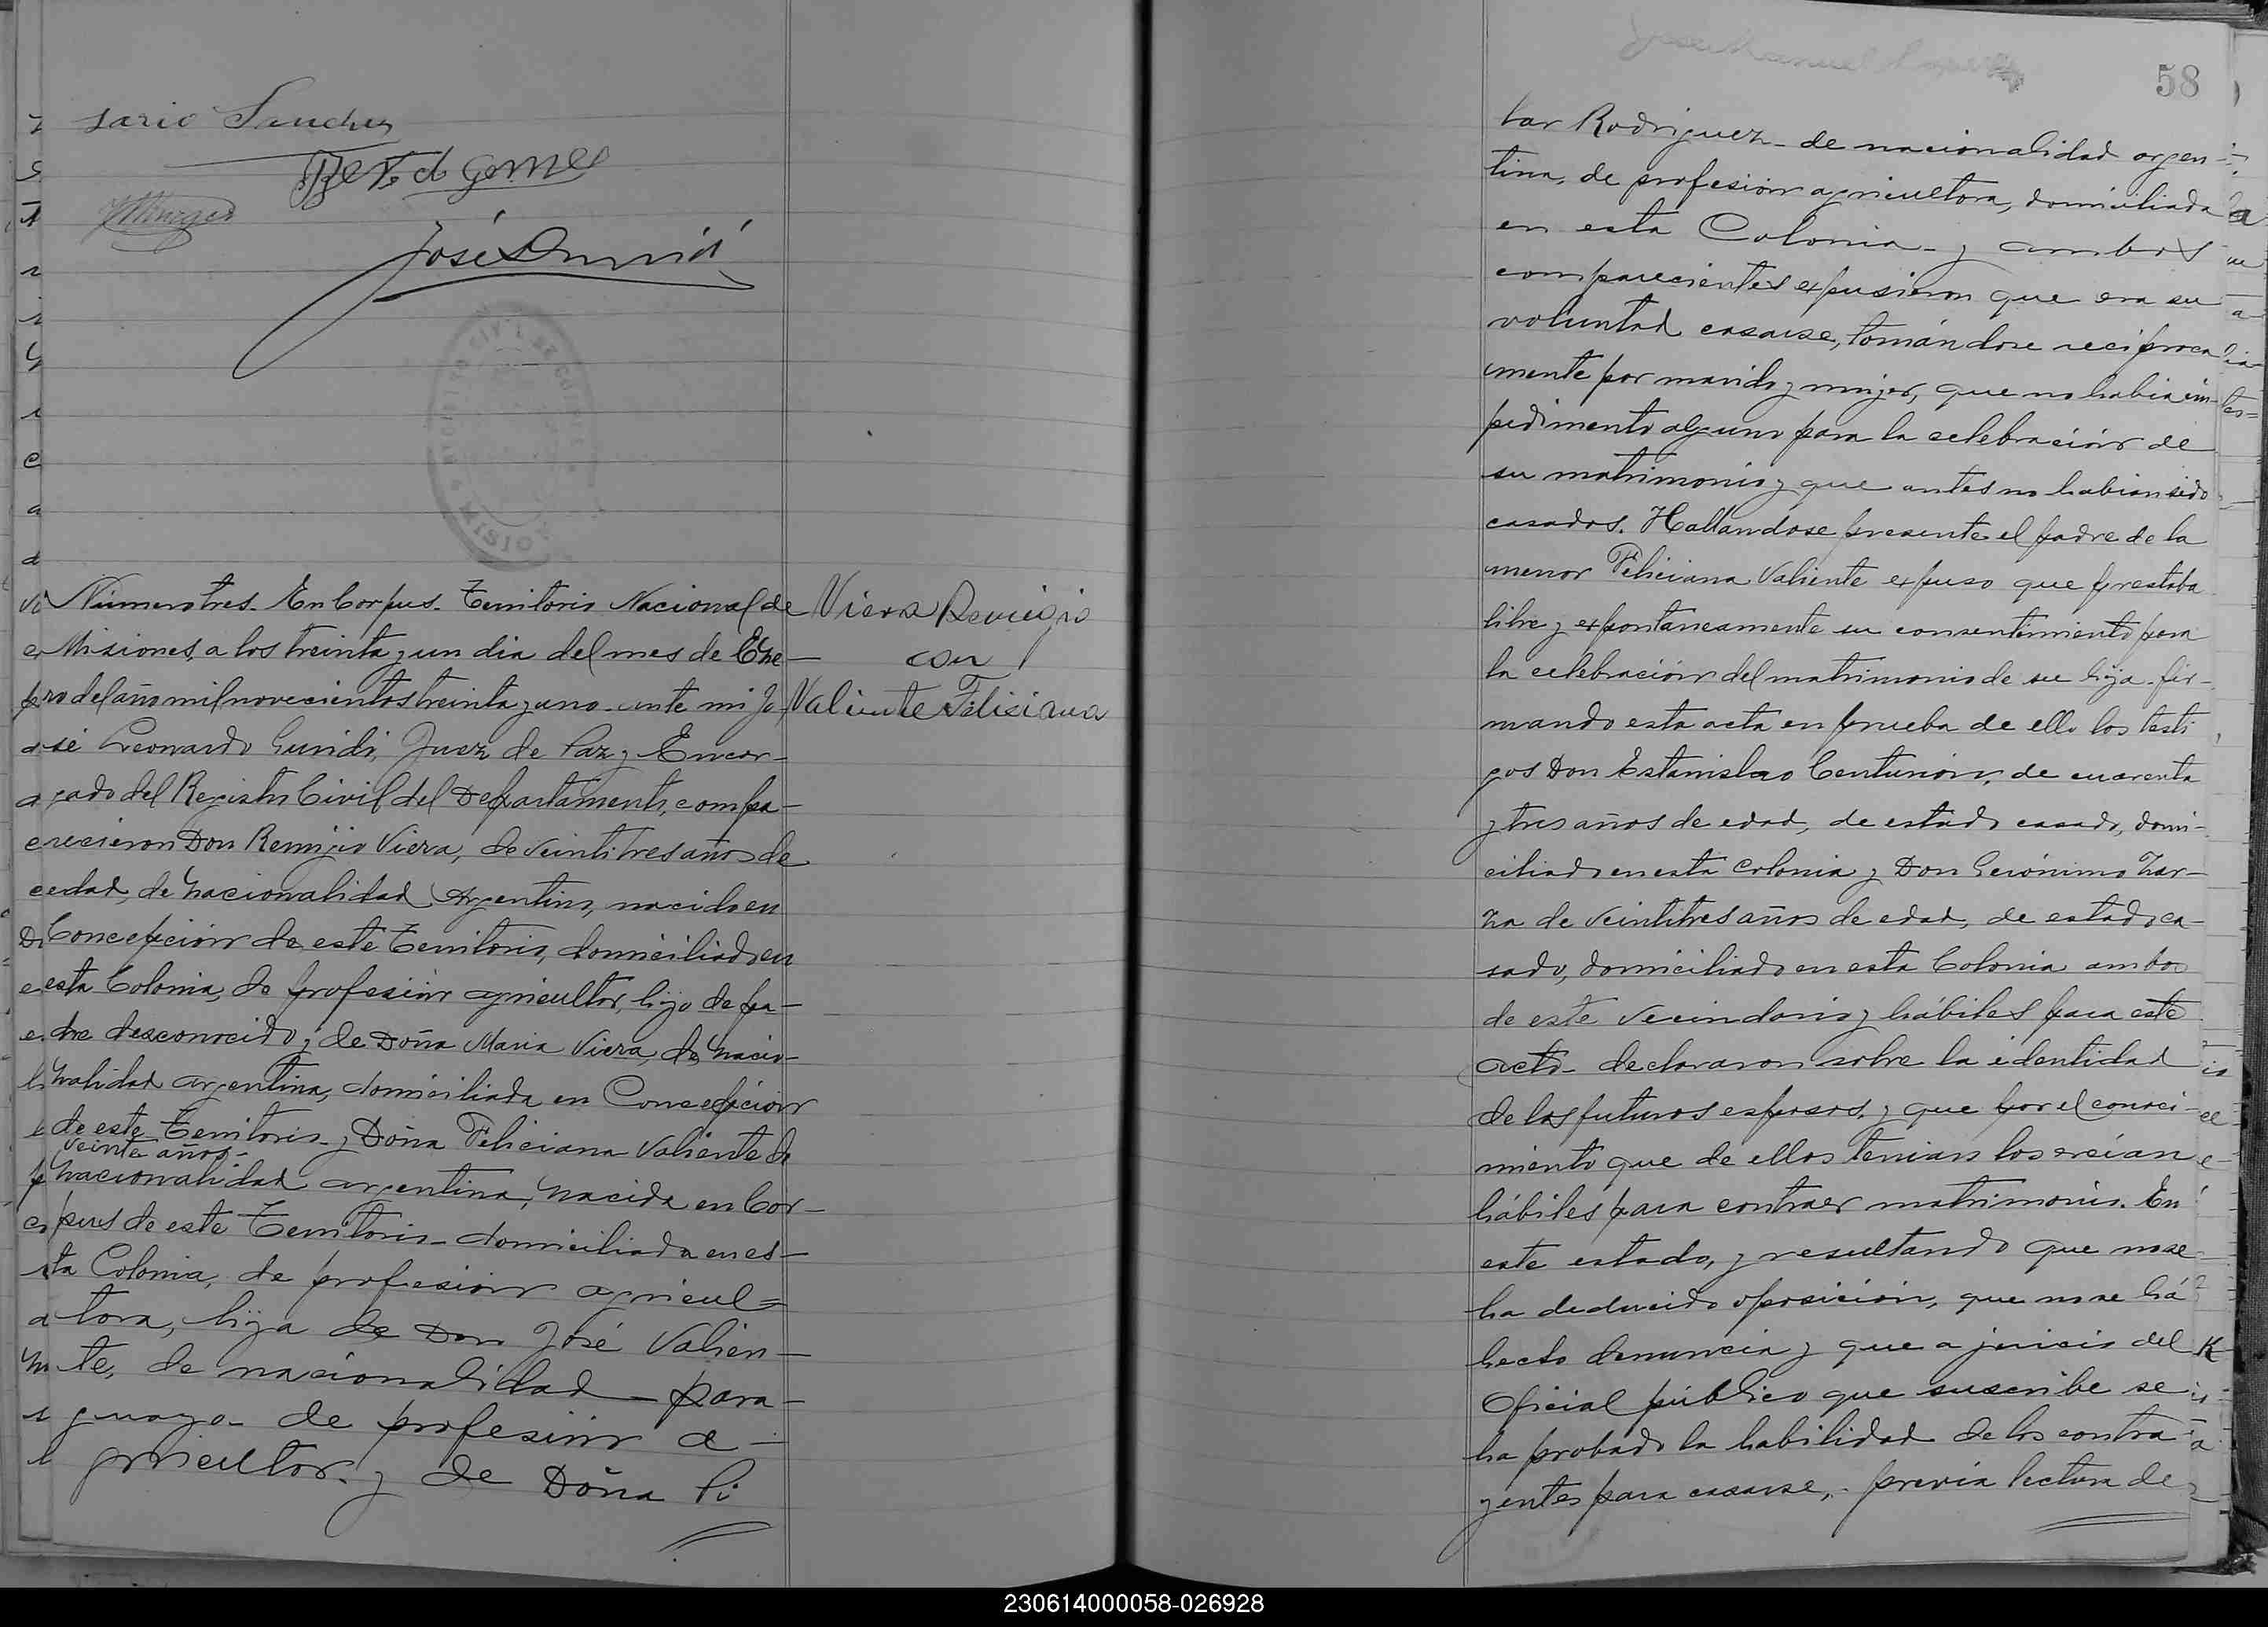 sario Sanchez
José Guridi
Número tres. En Corpus. Territorio Nacional de
Misiones, a los treinta y un dia del mes de Ene-
ro del año mil novecientos treinta y uno. ante mi Jo-
sé Leonardo Guridi, Juez de Paz y Encar-
gado del Registro Civil del Departamento, compa-
recieron Don Remijio Viera, de veintitres años de
edad, de nacionalidad Argentino, nacido en
Concepción de este Territorio, domiciliado en
esta Colonia, de profesión agricultor, hijo de pa-
dre desconocido y de Doña Maria Viera, de nacio-
nalidad argentina, domiciliada en Concepción
de este Territorio y Doña Feliciana Valiente de
veinte años-
nacionalidad argentina, nacida en Cor-
pus de este Territorio- domiciliada en es-
ta Colonia, de profesión agricul=
tora, hija de Don José Valien-
te, de nacionalidad para-
guaya de profesión a-
gricultor. y de Doña Pi
Viera Remigio
con
Valiente Feliciana
58
lar Rodriguez- de nacionalidad argen-
tina, de profesión agricultora, domiciliada
en esta Colonia- y ambos
comparecientes expusieron que era su
voluntad casarse, tomándose recíproca
mente por marido y mujer, que no habia im-
pedimento alguno para la celebración de
su matrimonio y que antes no habian sido
casados. Hallandose presente el padre de la
menor Feliciana Valiente expuso que prestaba
libre y expontaneamente su consentimiento para
la celebración del matrimonio de su hija- fir-
mando esta acta en prueba de ello los testi
gos Don Estanislao Centurión, de cuarenta
y tres años de edad, de estado casado, domi-
ciliado en esta Colonia y Don Gerónimo Zar-
za de veintitres años de edad, de estado ca-
sado, domiciliado en esta Colonia ambos
de este vecindario y hábiles para este
acto- declararon sobre la identidad
de los futuros esposos, y que por el conoci-
miento que de ellos tenian los creían
hábiles para contraer matrimonio. En
este estado, y resultando que no se
ha deducido oposición, que no se há
hecho denuncia y que a juicio del
Oficial público que suscribe se
ha probado la habilidad de los contra-
yentes para casarse, previa lectura de
230614000058-026928